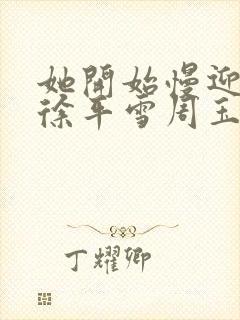 她開始慢迎
徐年雪周玉
丁耀卿